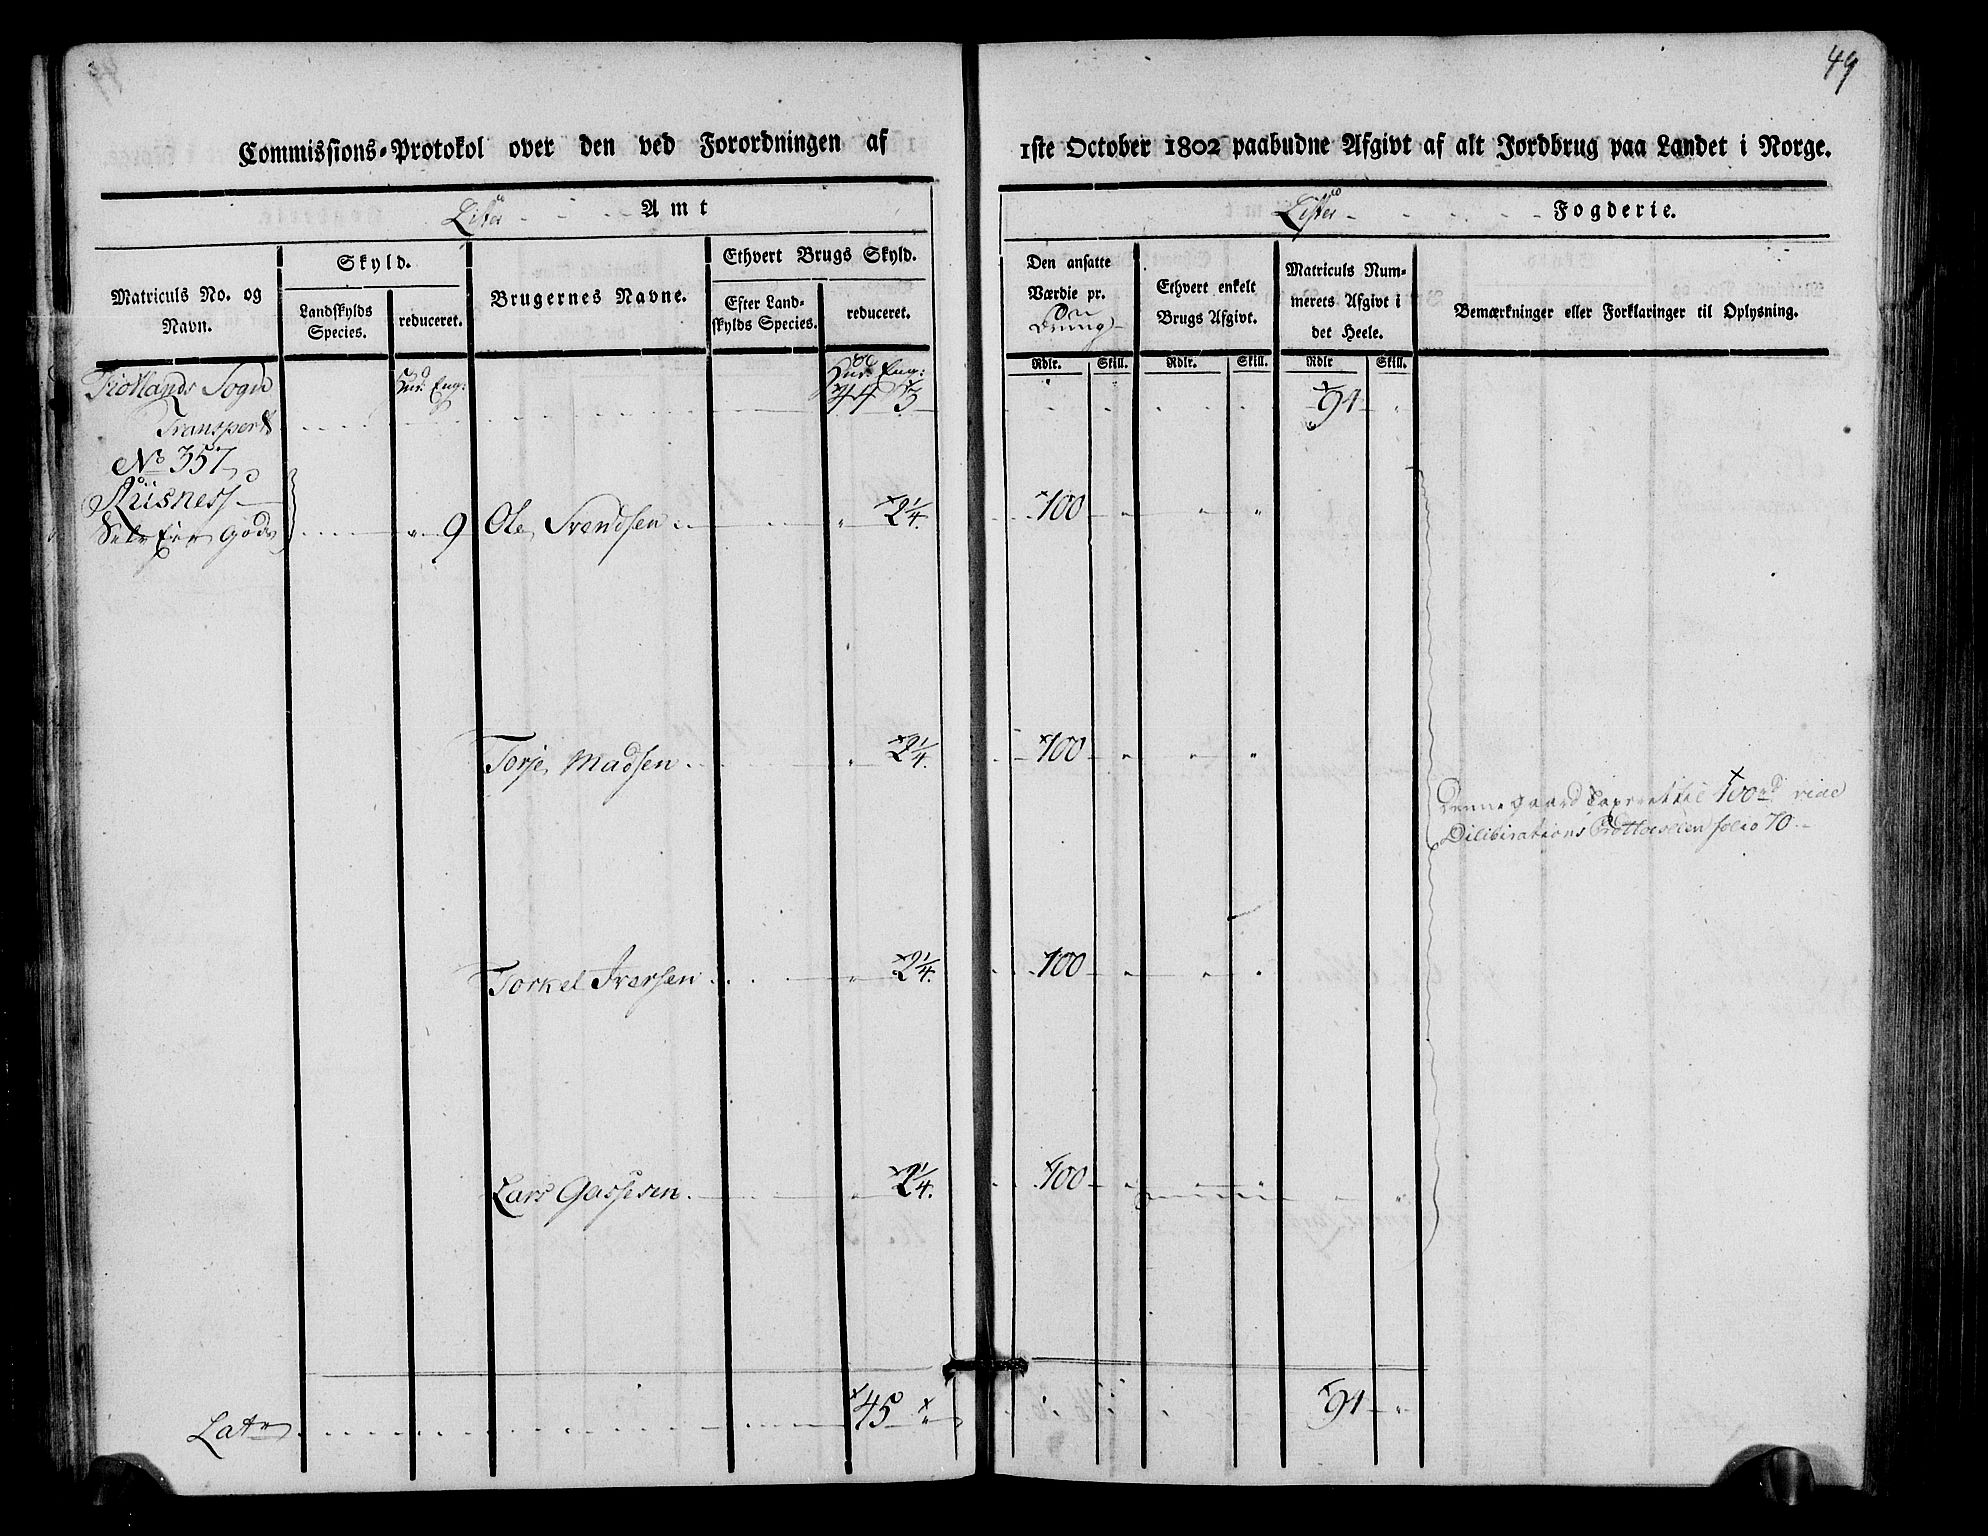 49
Commissions-Protokol over den ved Forordningen af 1ste October 1802 paabudne Afgivt af alt Jordbrug paa Landet i Norge.
Lister Amt
Lister Fogderie.
Matriculs No. og Navn.
Skyld.
Landskylds Species.
reduceret.
Brugernes Navne.
Ethvert Brugs Skyld.
Efter Landskylds Species.
reduceret.
Den ansatte Værdie pr.
Ethvert enkelt Brugs Afgivt.
Matriculs Nummerets Afgivt i det Heele.
Bemærkninger eller Forklaringer til Oplysning.
Rdlr. Skill. Rdlr. Skill. Rdlr Skill.
Sogn Hud: Eng: Hud: Eng:
Transport 44 3 91 "
No 357
Riisness
Selv Eier Gods " 9 Ole Svendsen " 2 1/4. 100 " " "
Torje Madsen " 2 1/4. 100 " " "
Denne Gaard Taxeret til 400 rd vide
Dilibirations Prottocollen folio 70
Torkel Iversen " 2 1/4. 100 " " "
Lars Gassesen " 2 1/4. 100 " " " "
Latr 45 " 91 "